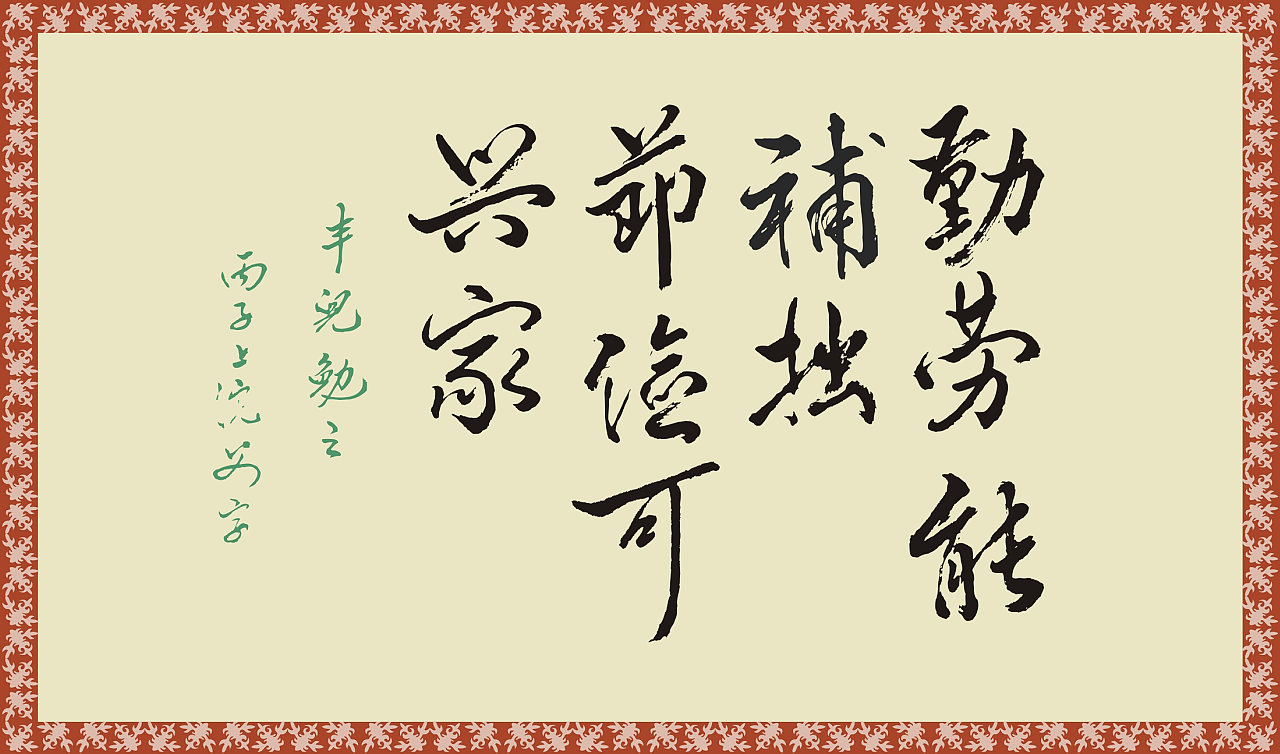 勤劳能
補拙
節儉可
兴家
丰兒勉之
丙子上浣父字